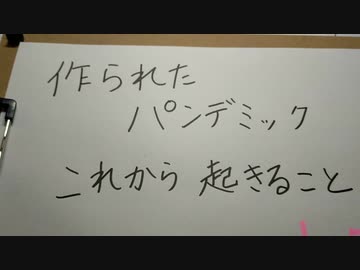 作られた
パンデミック
これから 起きること